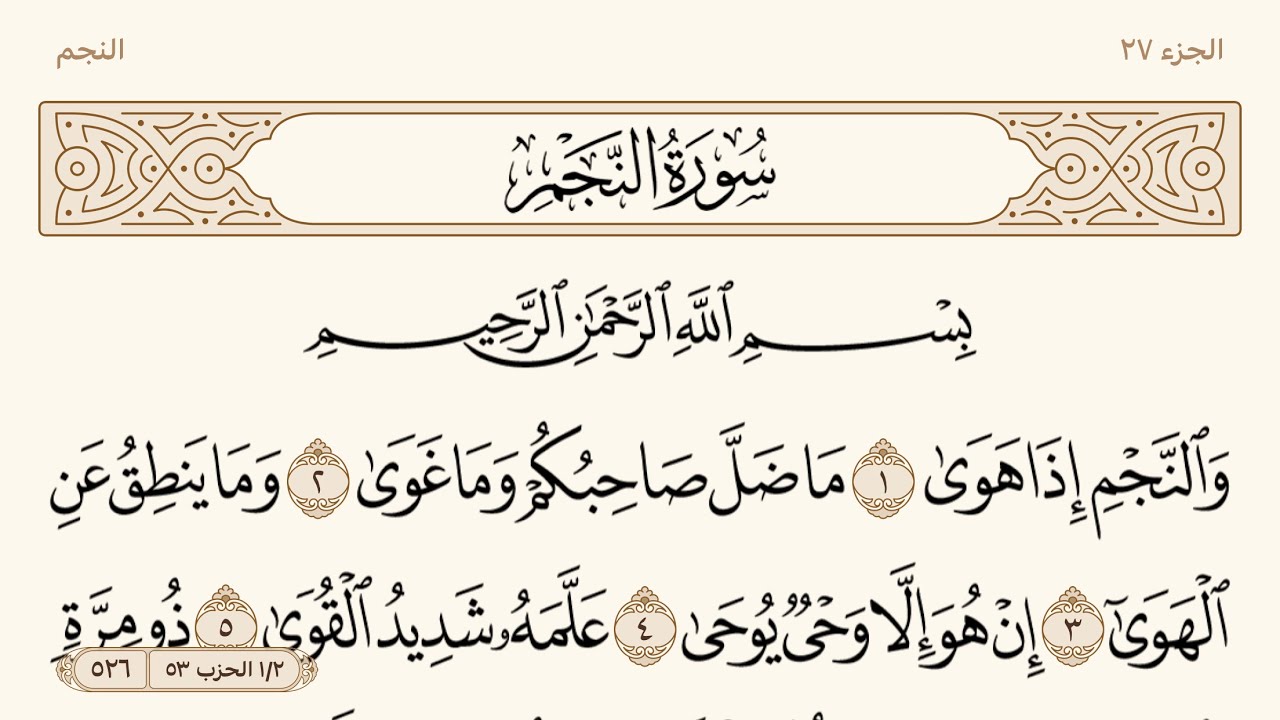 الجزء ٢٧
النجم
سُورَةُ النَّجْمِ
بِسْمِ ٱللَّهِ ٱلرَّحْمَٰنِ ٱلرَّحِيمِ
وَٱلنَّجْمِ إِذَا هَوَىٰ ١ مَا ضَلَّ صَاحِبُكُمْ وَمَا غَوَىٰ ٢ وَمَا يَنطِقُ عَنِ
ٱلْهَوَىٰٓ ٣ إِنْ هُوَ إِلَّا وَحْىٌ يُوحَىٰ ٤ عَلَّمَهُۥ شَدِيدُ ٱلْقُوَىٰ ٥ ذُو مِرَّةٍ
١/٢ الحزب ٥٣
٥٢٦